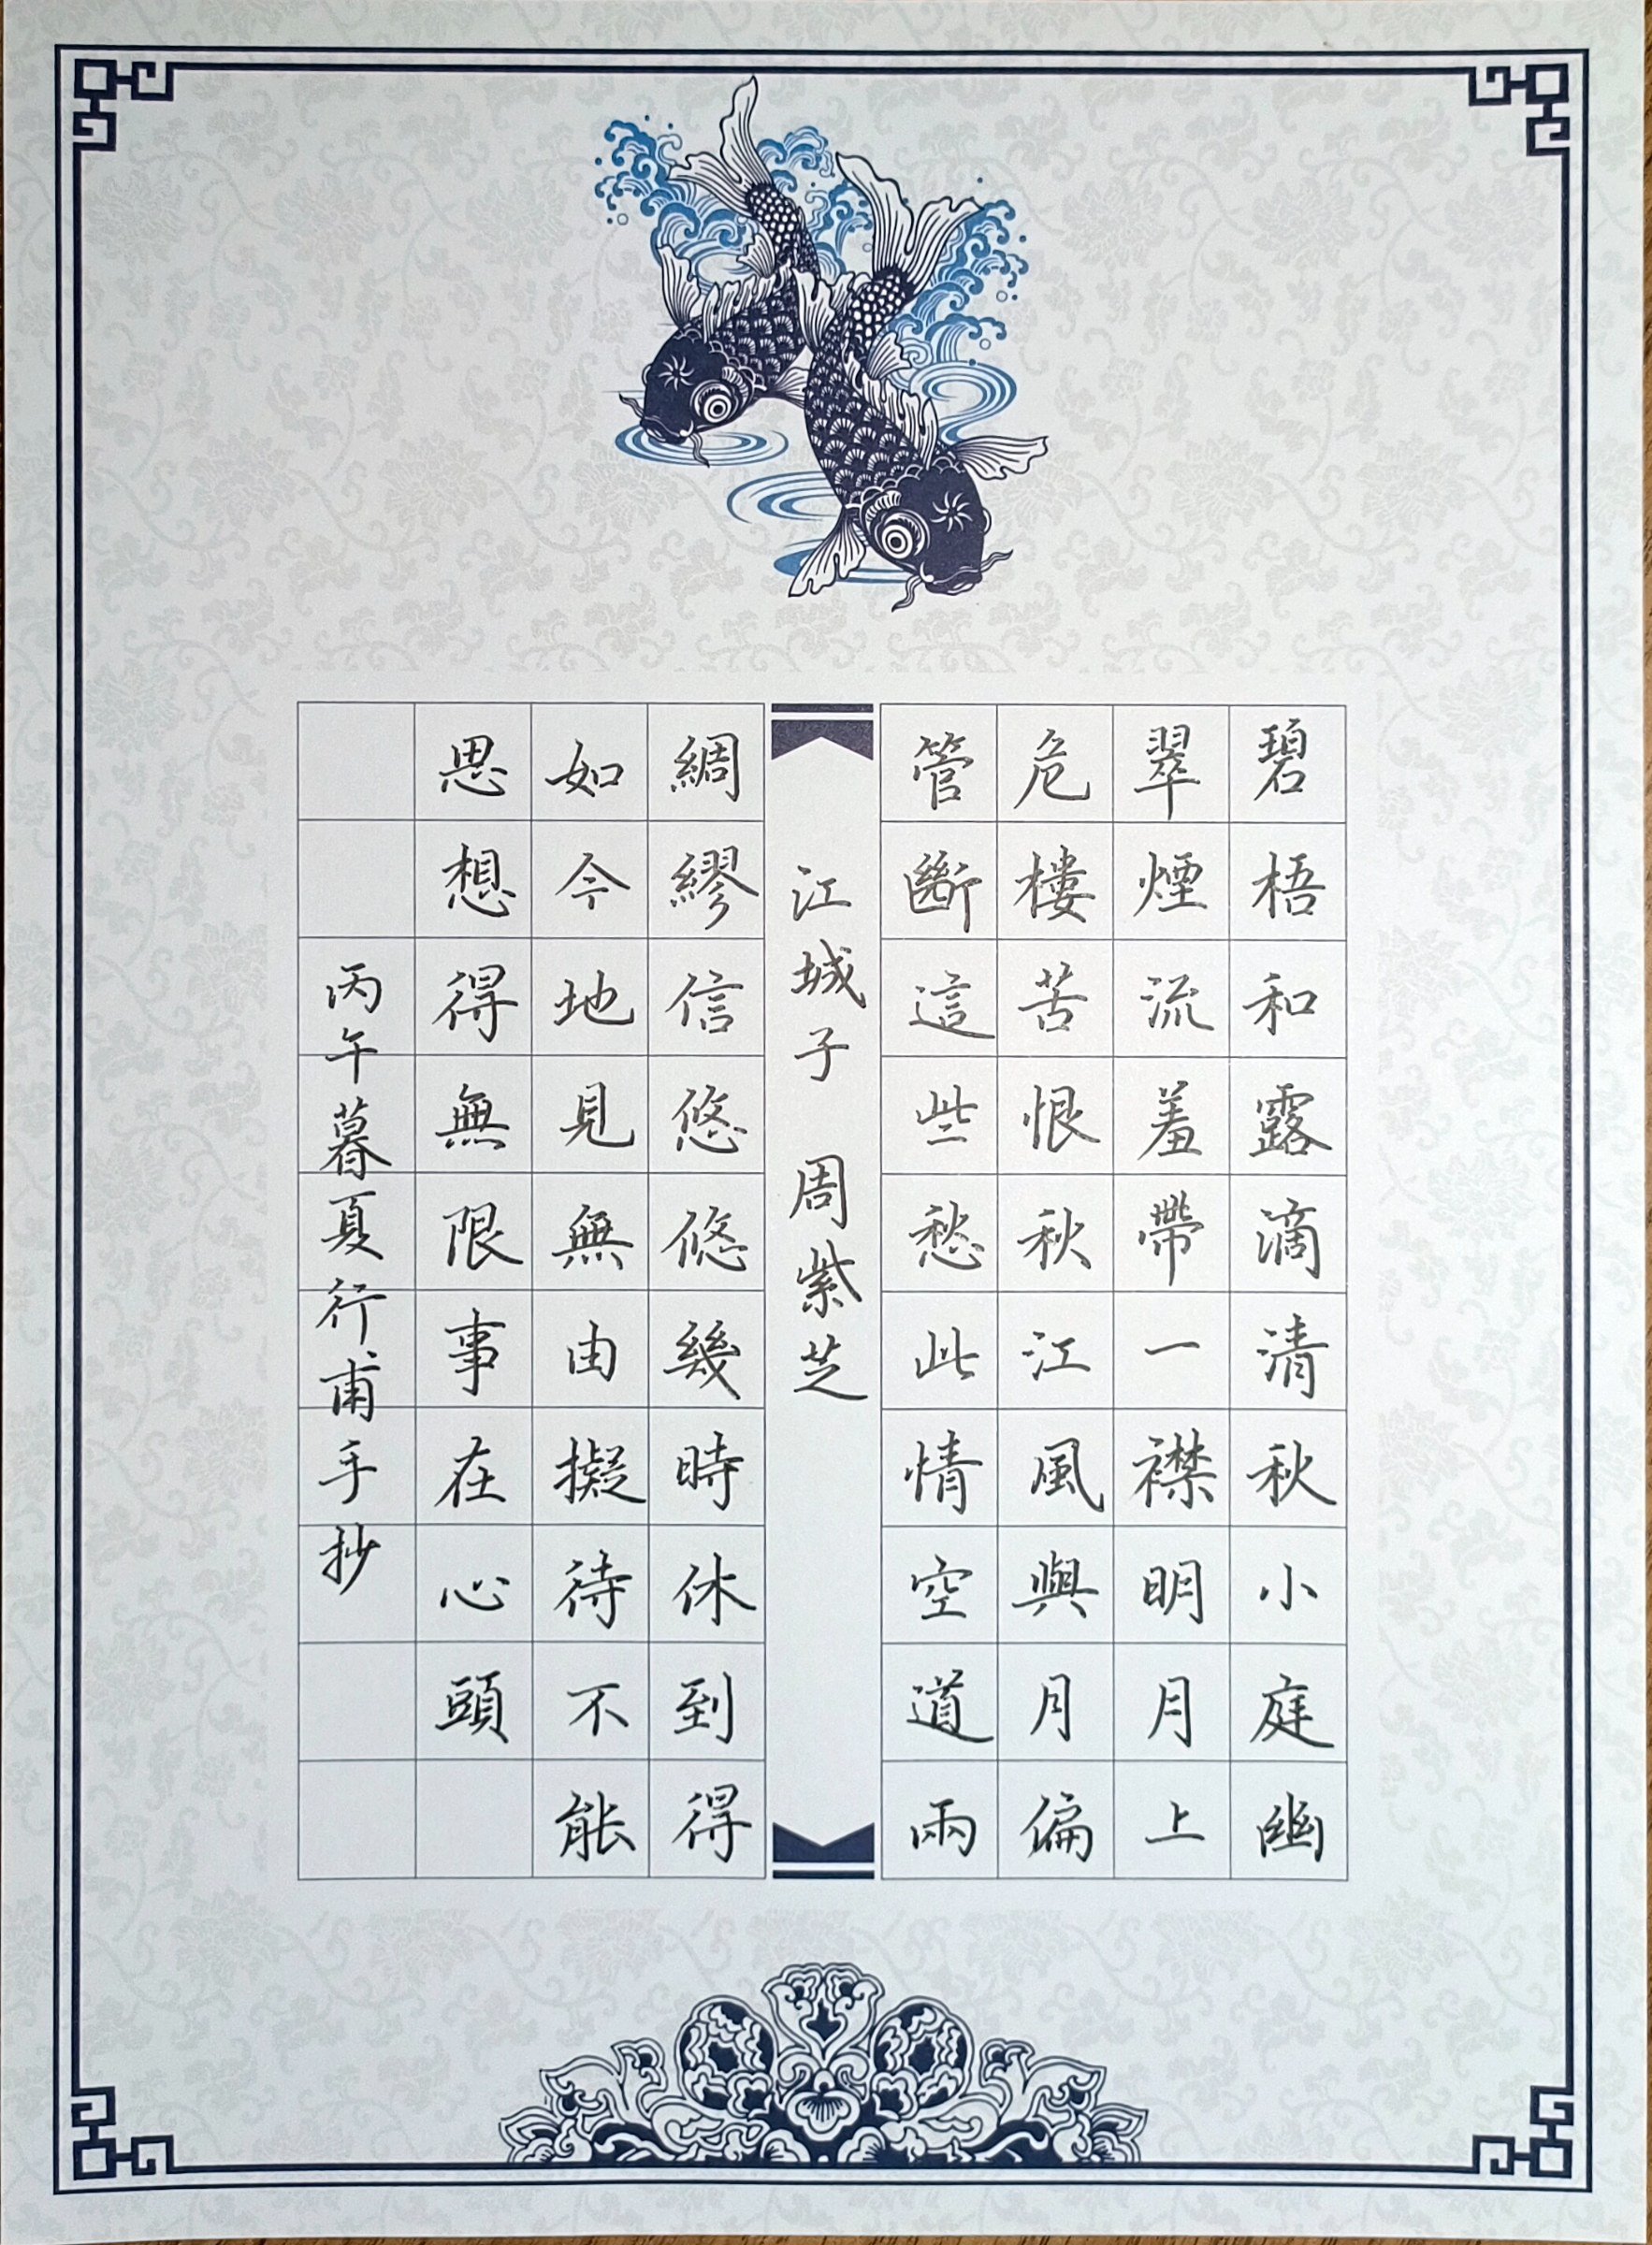 碧梧和露滴清秋小庭幽
翠煙流羞帶一襟明月上
危樓苦恨秋江風與月偏
管斷這些愁此情空道兩
江城子 周紫芝
綢繆信悠悠幾時休到得
如今地見無由擬待不能
思想得無限事在心頭
丙午暮夏行甫手抄